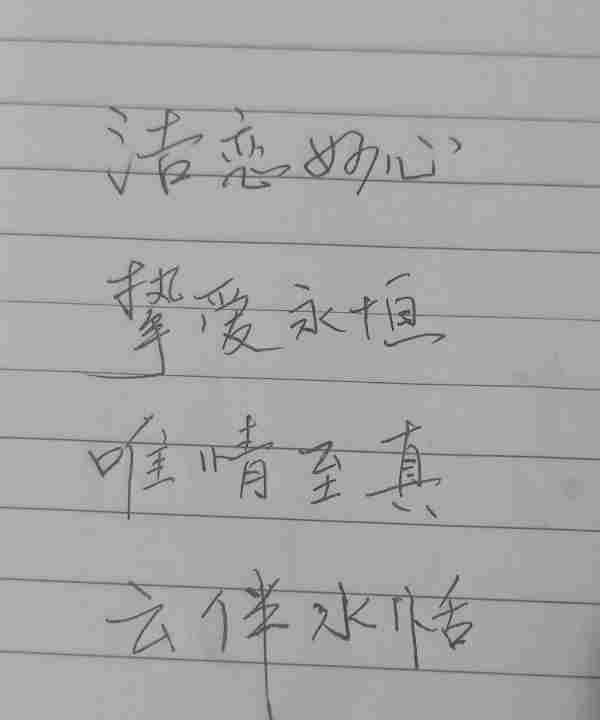 洁恋妙心
挚爱永恒
唯情至真
云伴水恬